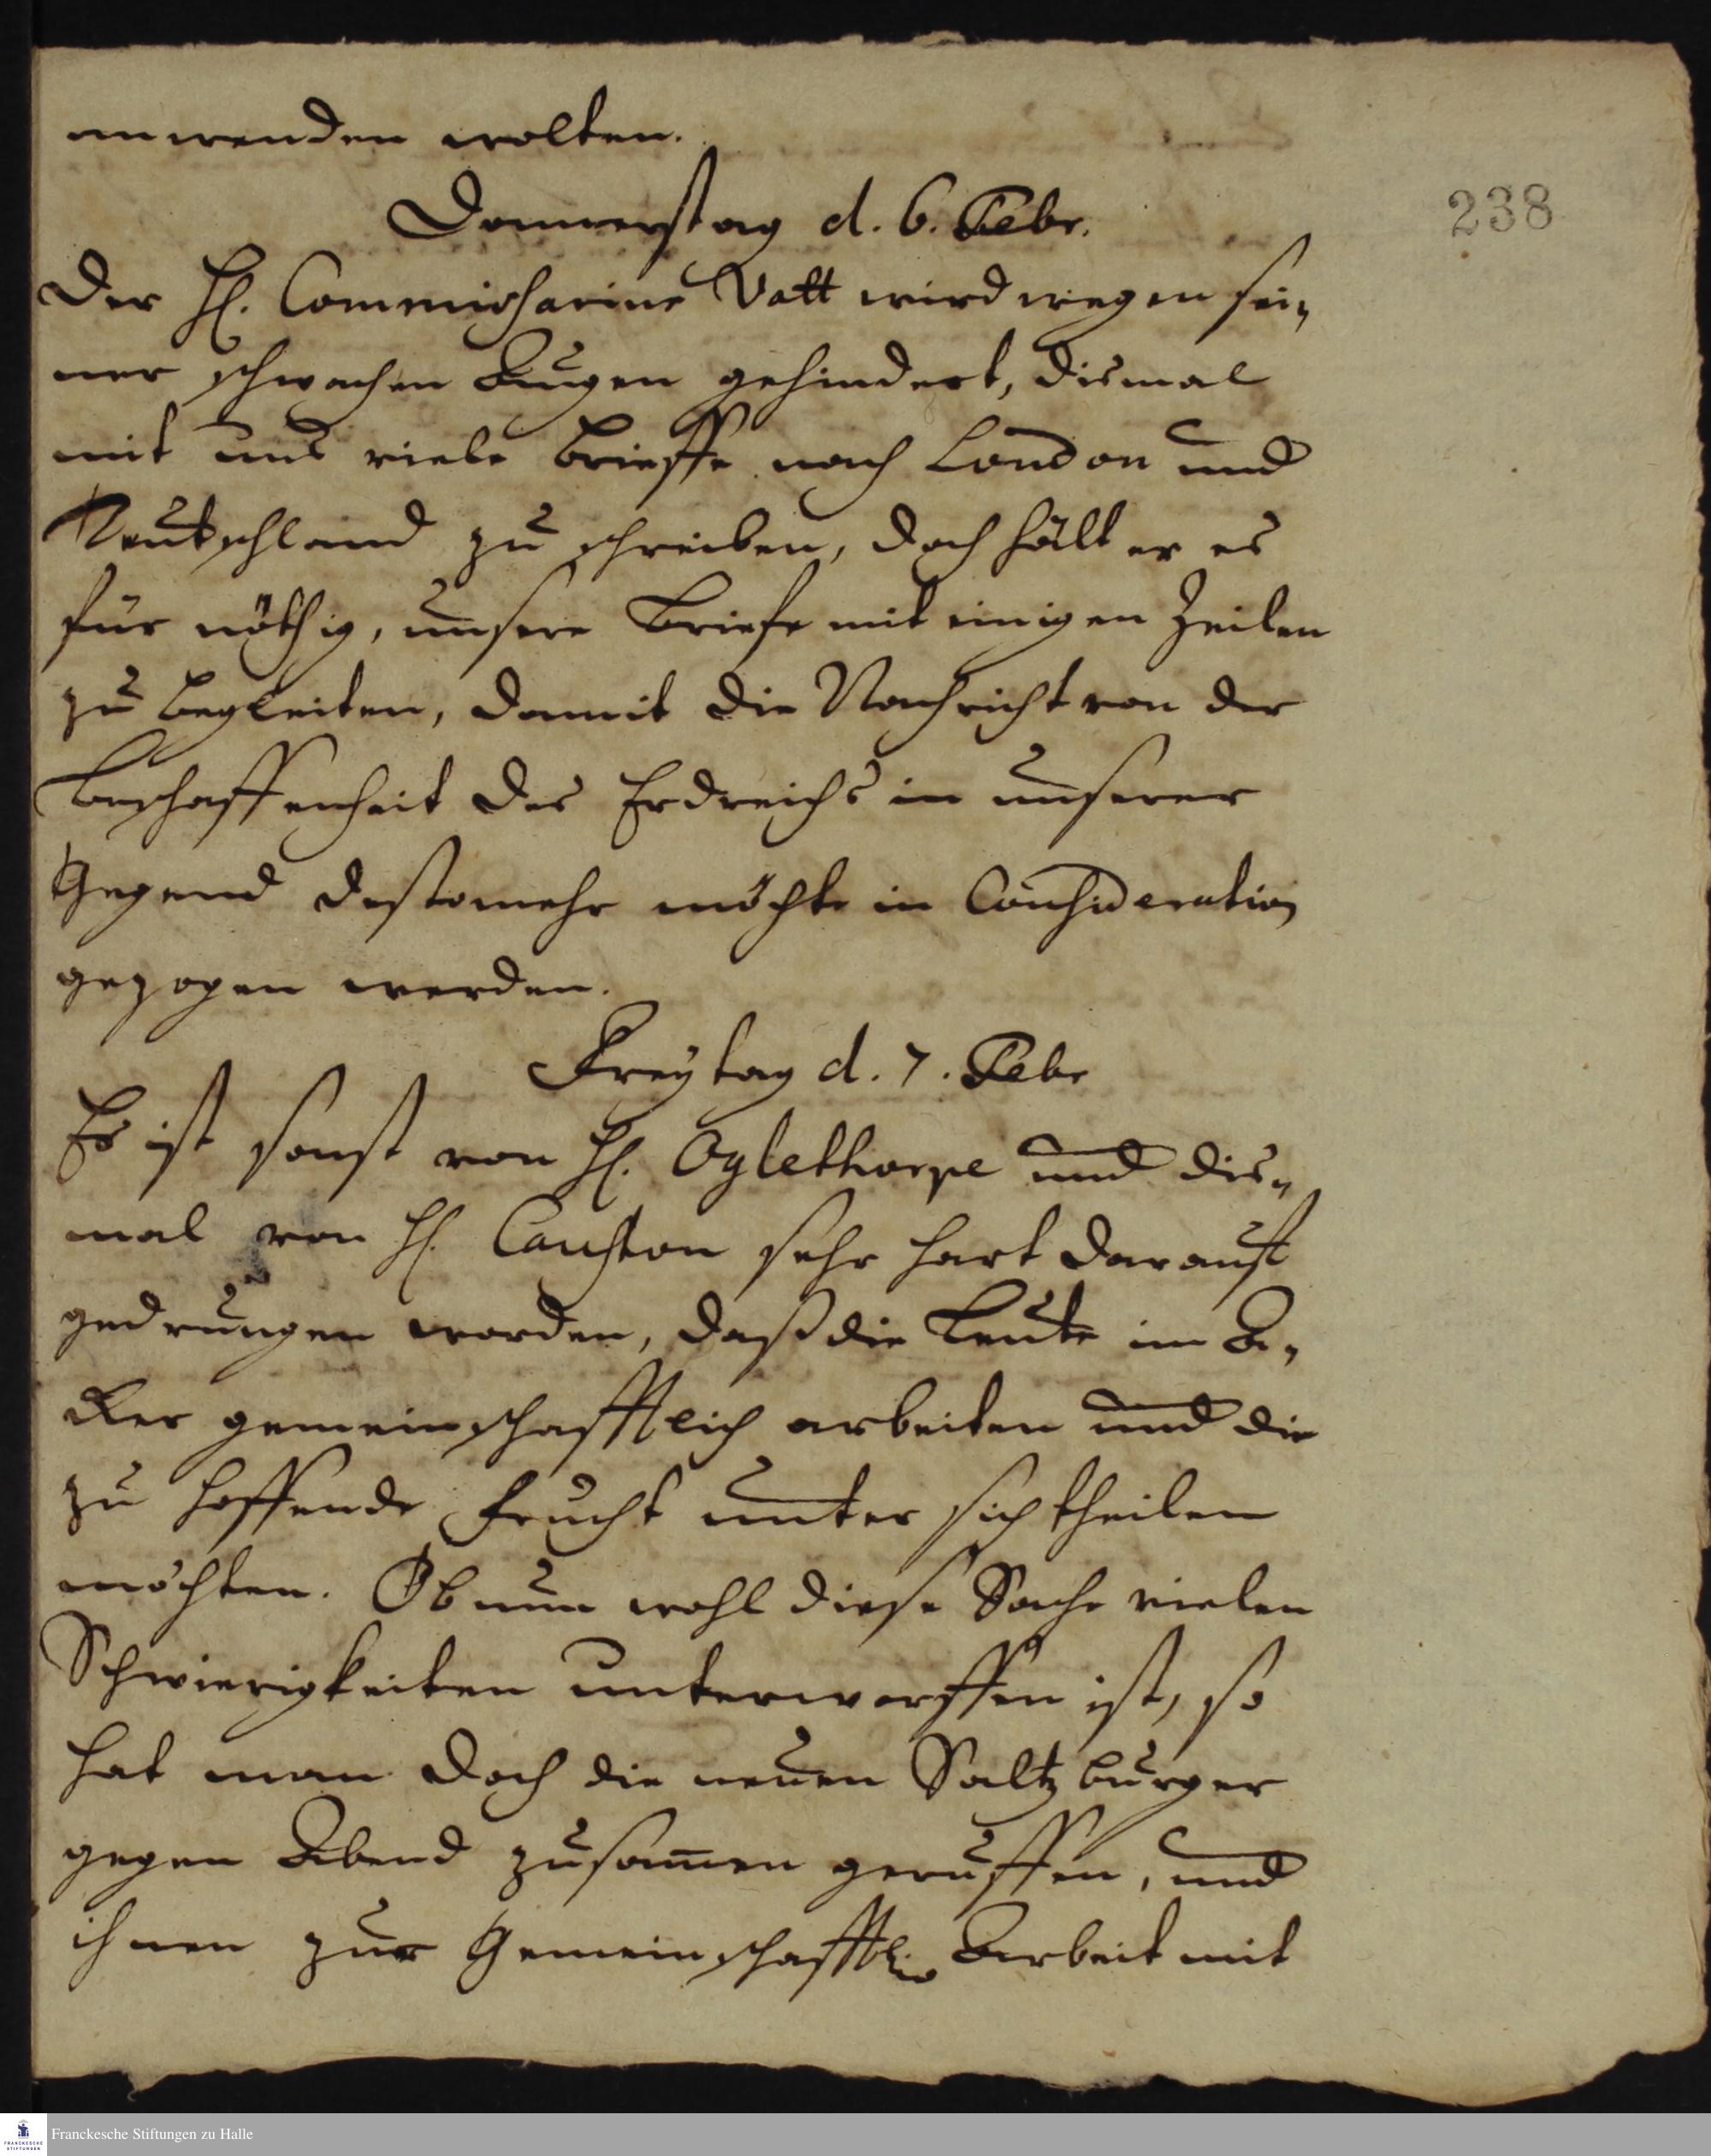 anwenden wolten.
Donnerstag d. 6. Febr.
238
Der H. Commissarius Vatt wird wegen sei„
ner schwachen Augen gehindert, dismal
mit uns viele brieffe nach London und
Teutschland zu schreiben, doch hält er es
für nöthig, unsere Briefe mit einigen Zeilen
zu begleiten, damit die Nachricht von der
beschaffenheit des Erdreichs in unserer
Gegend destomehr möchte in Consideration
gezogen werden.
Freytag d. 7. Febr
Es ist sonst von H. Oglethorpe und dis„
mal von H. Causton sehr hart darauf
gedrungen worden, daß die Leute im A„
cker gemeinschafftlich arbeiten und die
zu hoffende Frucht unter sich theilen
möchten. Ob nun wohl diese Sache vielen
Schwierigkeiten unterworffen ist, so
hat man doch die neuen Saltzburger
gegen Abend zusam̄en geruffen, und
ihnen zur Gemeinschafftl. Arbeit mit
Franckesche Stiftungen zu Halle
FRANCKESCHE
STIFTUNGEN